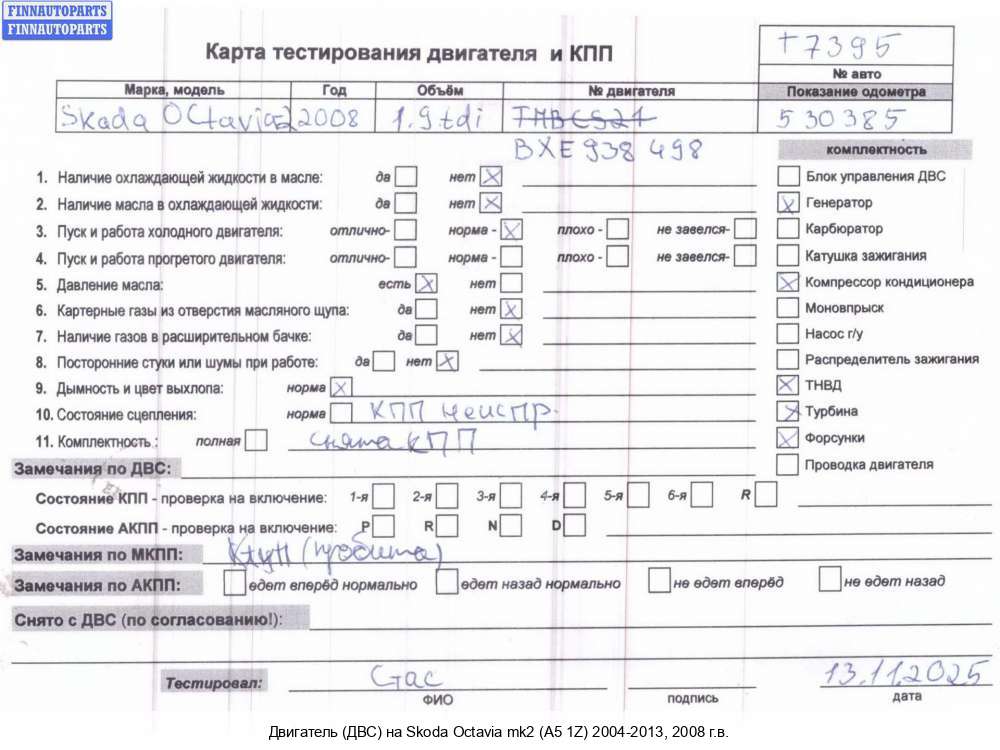 FINNAUTOPARTS
FINNAUTOPARTS
Карта тестирования двигателя и КПП
Т7395
№ авто
Марка, модель Год Объём № двигателя Показание одометра
Skoda Octavia 2 2008 1.9 tdi TMBCS21 530385
BXE 938 498
комплектность
1. Наличие охлаждающей жидкости в масле: да нет Блок управления ДВС
2. Наличие масла в охлаждающей жидкости: да нет Генератор
3. Пуск и работа холодного двигателя: отлично- норма - плохо - не завелся- Карбюратор
4. Пуск и работа прогретого двигателя: отлично- норма - плохо - не завелся- Катушка зажигания
5. Давление масла: есть нет Компрессор кондиционера
6. Картерные газы из отверстия масляного щупа: да нет Моновпрыск
7. Наличие газов в расширительном бачке: да нет Насос г/у
8. Посторонние стуки или шумы при работе: да нет Распределитель зажигания
9. Дымность и цвет выхлопа: норма ТНВД
10. Состояние сцепления: норма КПП неиспр. Турбина
11. Комплектность : полная снята КПП Форсунки
Замечания по ДВС: Проводка двигателя
Состояние КПП - проверка на включение: 1-я 2-я 3-я 4-я 5-я 6-я R
Состояние АКПП - проверка на включение: P R N D
Замечания по МКПП: (пробита)
Замечания по АКПП: едет вперёд нормально едет назад нормально не едет вперёд не едет назад
Снято с ДВС (по согласованию!):
Тестировал: Стас 13.11.2025
ФИО подпись дата
Двигатель (ДВС) на Skoda Octavia mk2 (A5 1Z) 2004-2013, 2008 г.в.